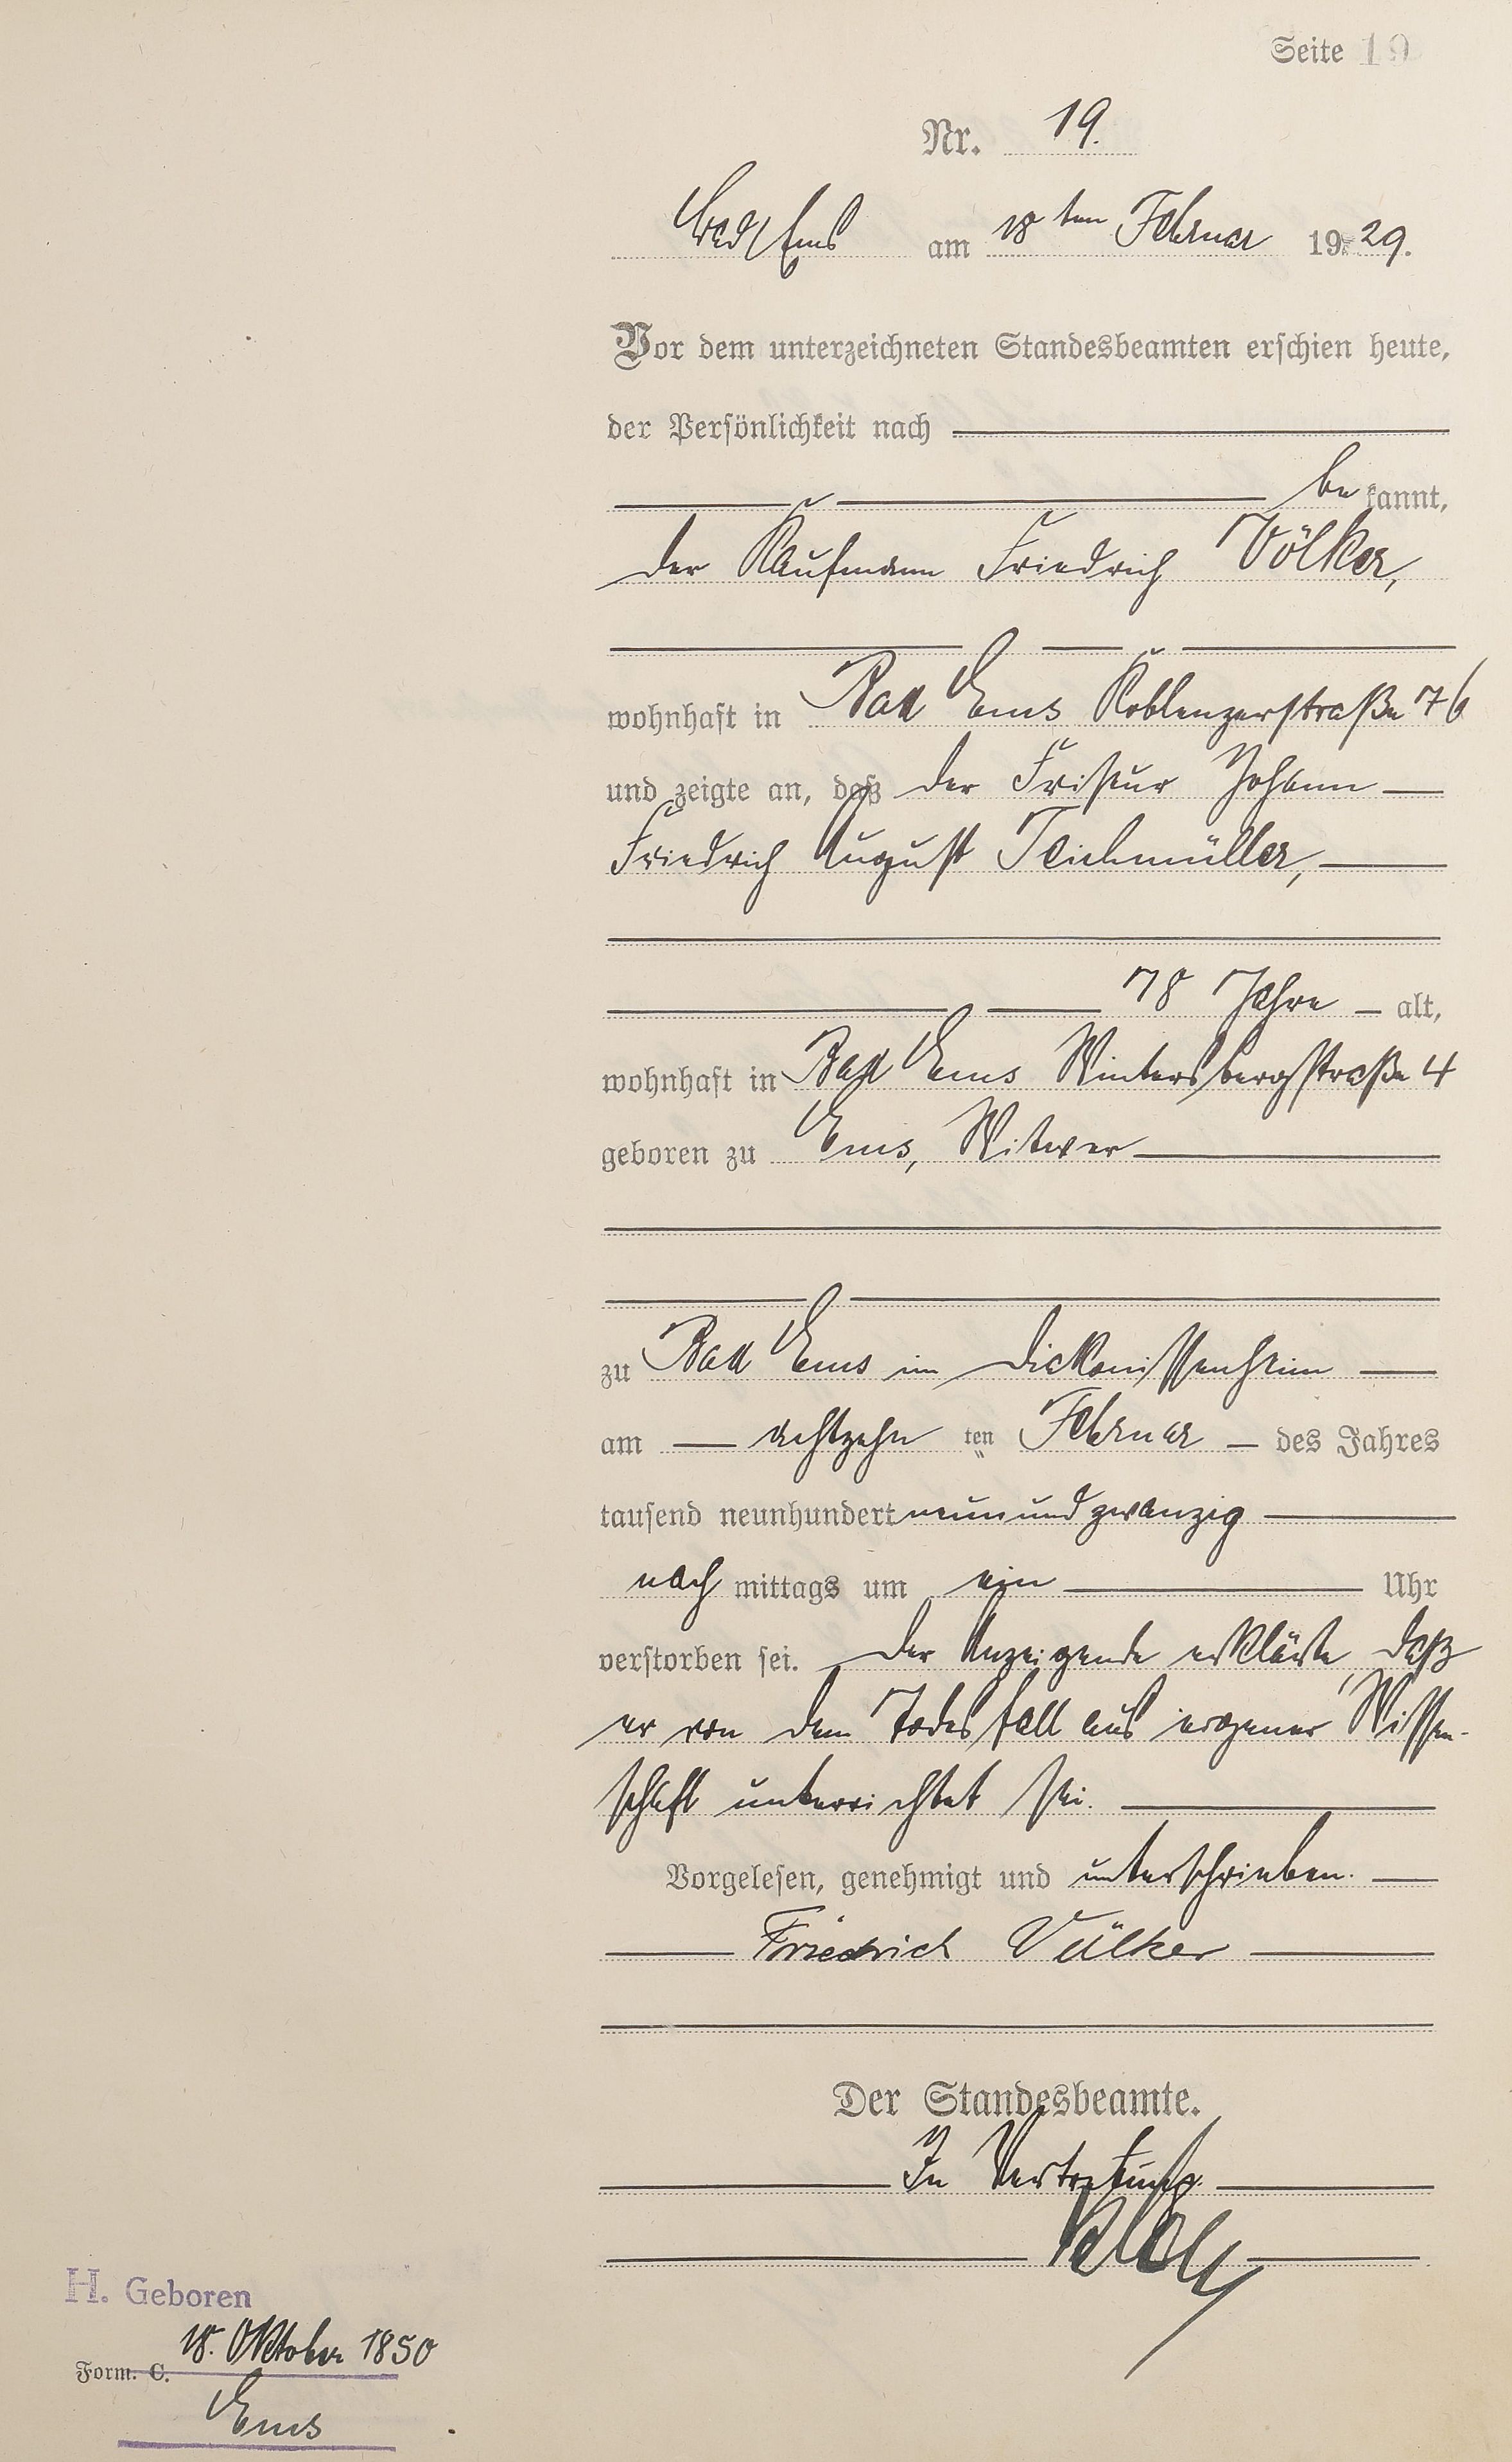 Seite 19
Nr. 19.
Bad Ems am 18ten Februar 1929.
Vor dem unterzeichneten Standesbeamten erschien heute,
der Persönlichkeit nach
bekannt,
der Kaufmann Friedrich Völker,
wohnhaft in Bad Ems Koblenzerstraße 76
und zeigte an, daß der Friseur Johann
Friedrich August Teichmüller,
78 Jahre alt,
wohnhaft in Bad Ems Wintersbergstraße 4
geboren zu Ems, Witwer
zu Bad Ems im Diakonissenheim
am achtzehn ten Februar des Jahres
tausend neunhundert neunundzwanzig
nach mittags um ein Uhr
verstorben sei. Der Anzeigende erklärte, daß
er von dem Todesfall aus eigener Wissen-
schaft unterrichtet sei.
Vorgelesen, genehmigt und unterschrieben.
Friedrich Völker
Der Standesbeamte.
In Vertretung.
H. Geboren
18. Oktober 1850
Form. C.
Ems